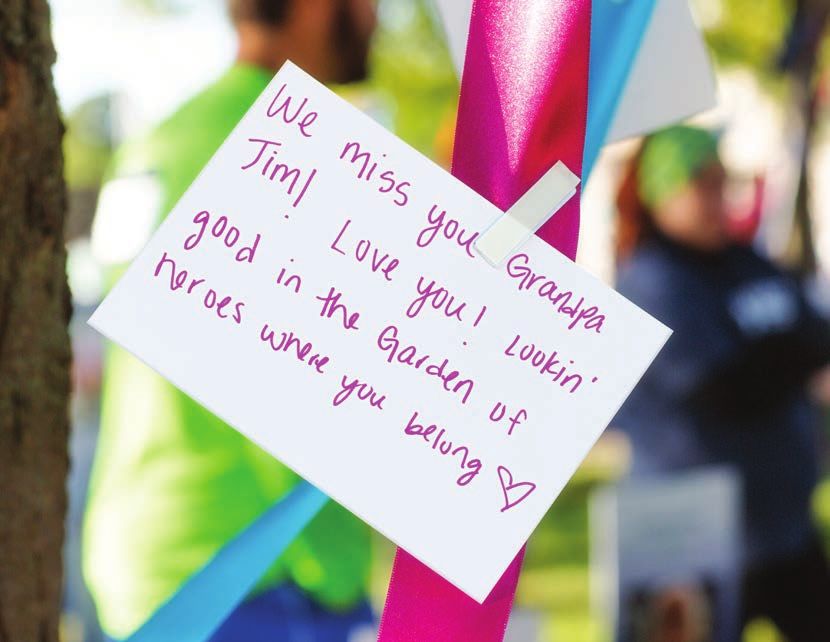 We miss you Grandpa
Jim! Love you! Lookin'
good in the Garden of
heroes where you belong ♡